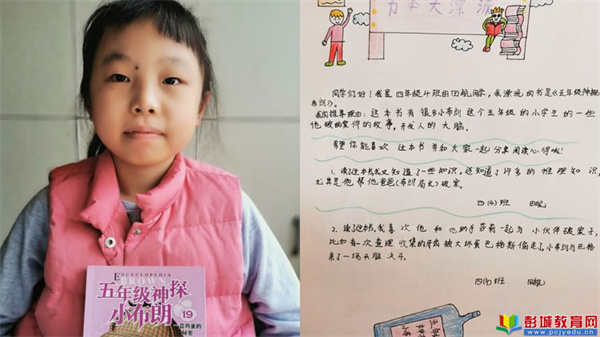 ENCYCLOPEDIA
BROWN
五年级神探
小布朗
19
书本大漂流
同学们好！我是四年级4班的田
我的推荐理由：这本书有很多小布朗这个五年级的小学生的一些
他破幽案件的故事，开发人的大脑。
希望你能喜欢这本书并和大家一起分享阅读心得哦！
1、读了这本书我又知道了一些知识，还知道了许多的推理知识，
尤其是他帮他爸爸（布朗局长）破案。
四(4)班
2、读了这书，我喜欢他和他助手莎莉一起为小伙伴破案子，
比如有一次查理收集的牙齿被大坏蛋巴格斯偷走了，小布朗与巴格
来了一场头脑决斗。
四(4)班
彭城教育网
www.pcjyedu.cn